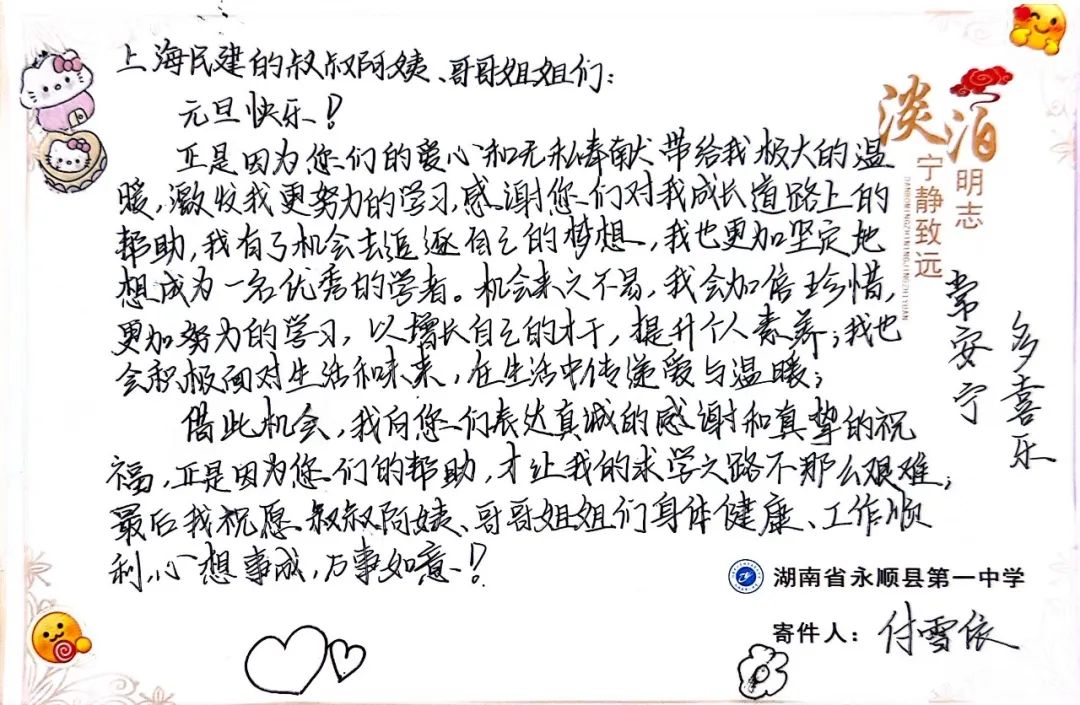 上海民建的叔叔阿姨、哥哥姐姐们:
元旦快乐!
正是因为您们的爱心和无私奉献带给我极大的温
暖,激发我更努力的学习,感谢您们对我成长道路上的
帮助,我有了机会去追逐自己的梦想,我也更加坚定地
想成为一名优秀的学者。机会来之不易,我会加倍珍惜,
更加努力的学习,以增长自己的才干,提升个人素养;我也
会积极面对生活和未来,在生活中传递爱与温暖;
借此机会,我向您们表达真诚的感谢和真挚的祝
福,正是因为您们的帮助,才让我的求学之路不那么艰难;
最后我祝愿叔叔阿姨、哥哥姐姐们身体健康、工作顺
利,心想事成,万事如意!
淡泊
明志
宁静致远
DANBOMINGZHININGJINGZHIYUAN
常安宁
多喜乐
湖南省永顺县第一中学
寄件人:付雪依